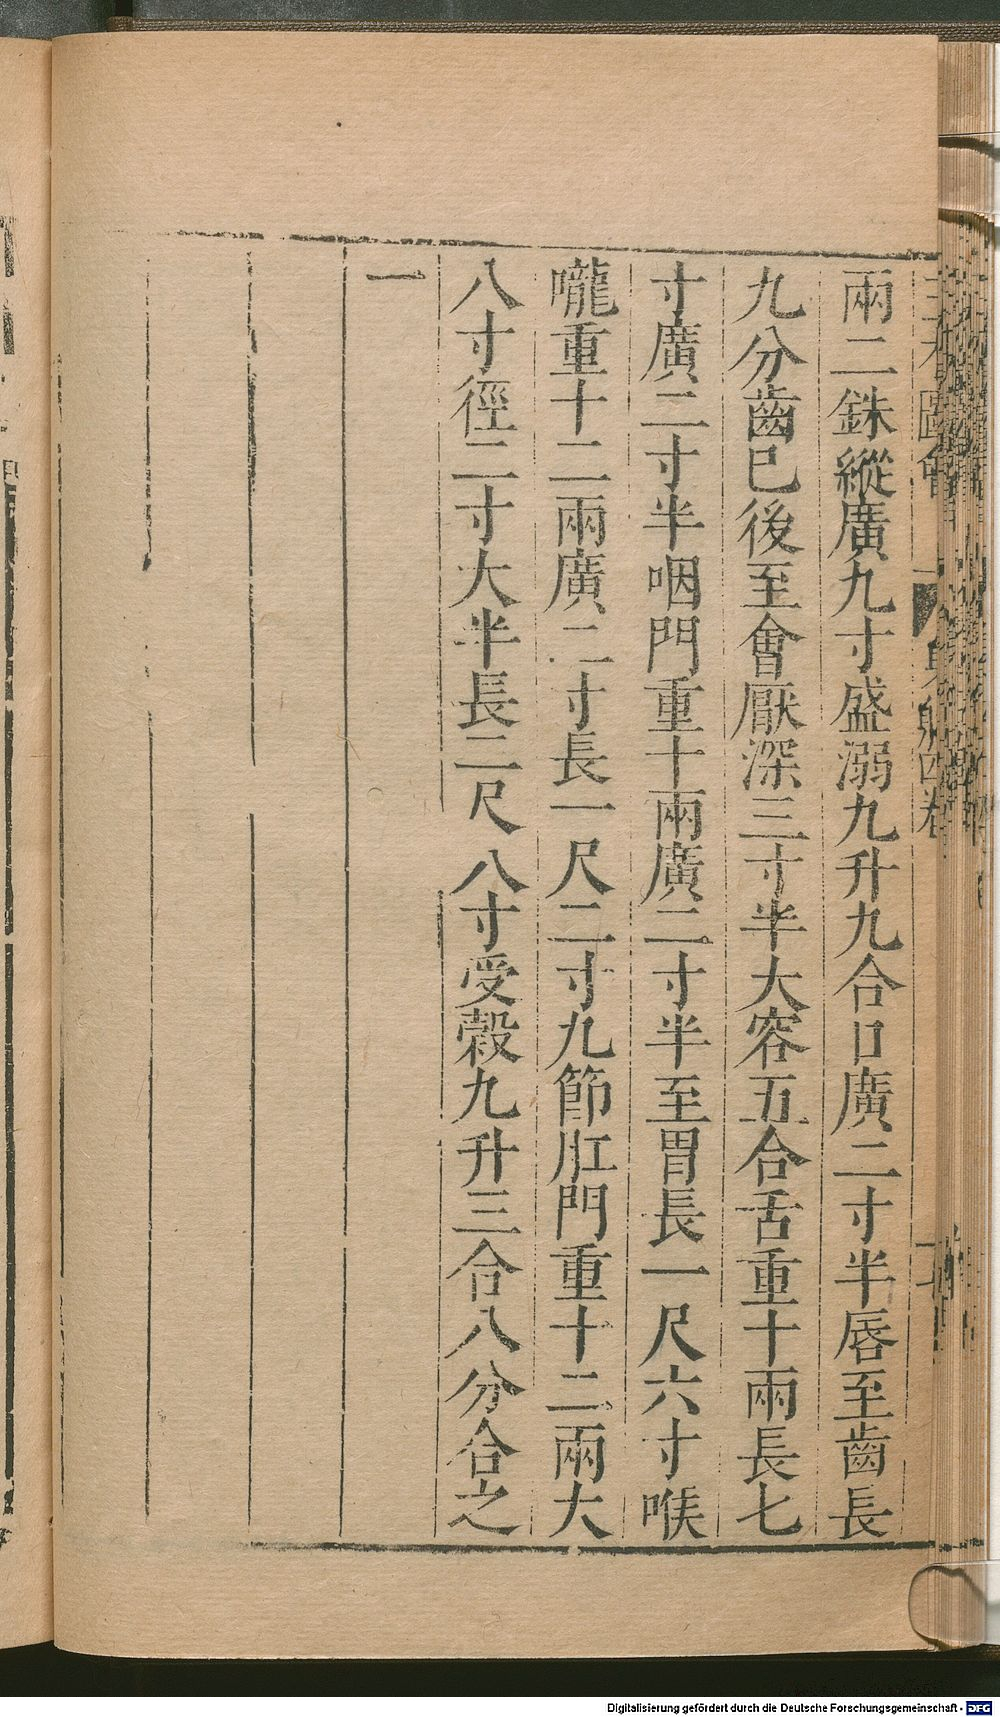 兩二銖縱廣九寸盛溺九升九合口廣二寸半唇至齒長
九分齒已後至會厭深三寸半大容五合舌重十兩長七
寸廣二寸半咽門重十兩廣二寸半至胃長一尺六寸喉
嚨重十二兩廣二寸長一尺二寸九節肛門重十二兩大
八寸徑二寸大半長二尺八寸受穀九升三合八分合之
一
Digitalisierung gefördert durch die Deutsche Forschungsgemeinschaft - DFG